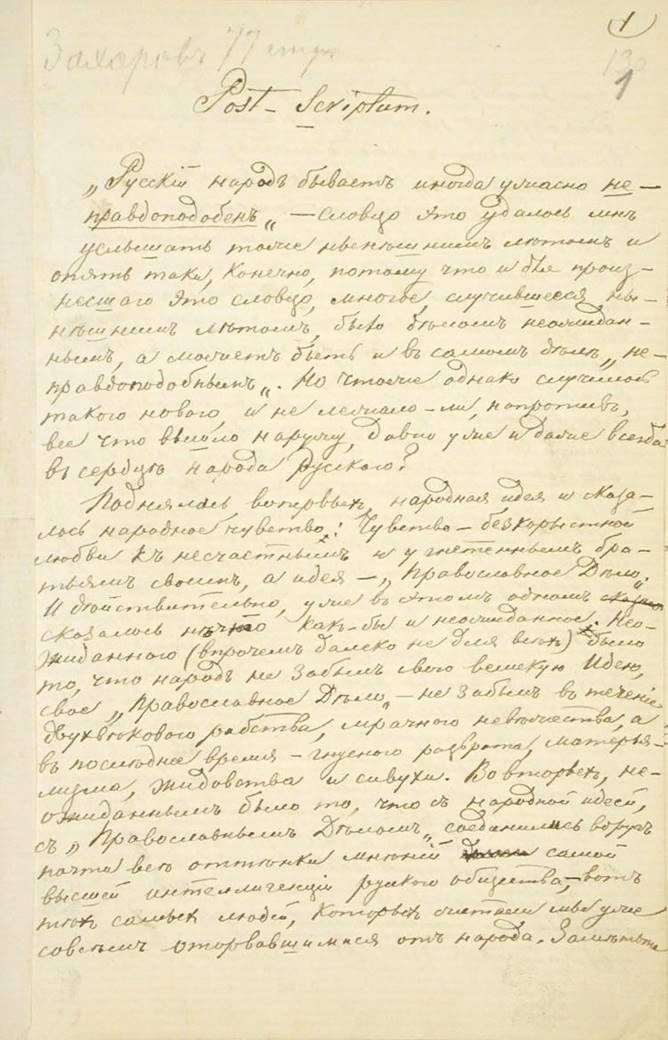 1
Захаровъ 77 стр.
130
1
Post-Scriptum.
„Русскій народъ бываетъ иногда ужасно не-
правдоподобенъ„ — словцо это удалось мнѣ
услышать тоже нынѣшнимъ лѣтомъ и
опять таки, конечно, потому что и для произ-
несшаго это словцо, многое, случившееся ны-
нѣшнимъ лѣтомъ, было дѣломъ неожидан-
нымъ, а можетъ быть и въ самомъ дѣлѣ „не-
правдоподобнымъ„. Но чтоже однако случилось
такого новаго и не лежало-ли, напротивъ,
все что вышло наружу, давно уже и даже всегда
въ сердцѣ народа Русскаго?
Поднялась вопервыхъ, народная идея и сказа-
лось народное чувство: Чувство — безкорыстной
любви къ несчастнымъ и угнетеннымъ бра-
тьямъ своимъ, а идея — „Православное Дѣло„.
И дѣйствительно, уже въ этомъ одномъ
сказалось нѣчто какъ-бы и неожиданное. Нео-
жиданнаго (впрочемъ далеко не для всѣхъ) было
то, что народъ не забылъ свою великую идею,
свое „Православное Дѣло„ — не забылъ въ теченіе
двухвѣковаго рабства, мрачнаго невѣжества, а
въ послѣднее время — гнуснаго разврата, матерья-
лизма, жидовства и сивухи. Вовторыхъ, не-
ожиданнымъ было то, что съ народной идеей,
съ „Православнымъ Дѣломъ„ соединились вдругъ
почти всѣ оттѣнки мнѣній самой
высшей интеллигенціи русскаго общества, — вотъ
тѣхъ самыхъ людей, которыхъ считали мы уже
совсѣмъ оторвавшимися отъ народа. Замѣтьте